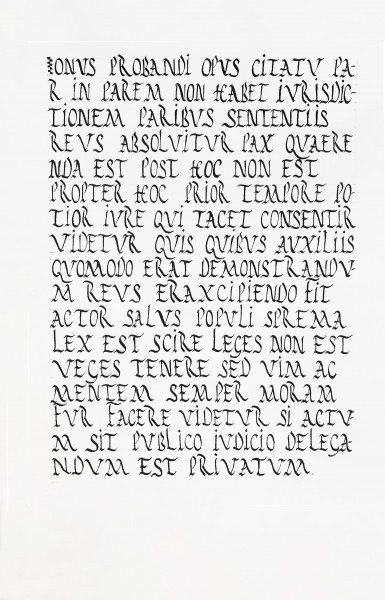 ONVS PROBANDI OPVS CITATV PA-
R IN PAREM NON HABET IVRISDIC-
TIONEM PARIBVS SENTENTIIS
REVS ABSOLVITVR PAX QVAERE
NDA EST POST HOC NON EST
PROPTER HOC PRIOR TEMPORE PO-
TIOR IVRE QVI TACET CONSENTIR
VIDETVR QVIS QVIBVS AVXILIIS
QVOMODO ERAT DEMONSTRANDV-
M REVS ERAXCIPIENDO FIT
ACTOR SALVS POPVLI SPREMA
LEX EST SCIRE LEGES NON EST
VEGES TENERE SED VIM AC
MENTEM SEMPER MORAM
FVR FACERE VIDETVR SI ACTV-
M SIT PVBLICO IVDICIO DELEGA
NDVM EST PRIVATVM.